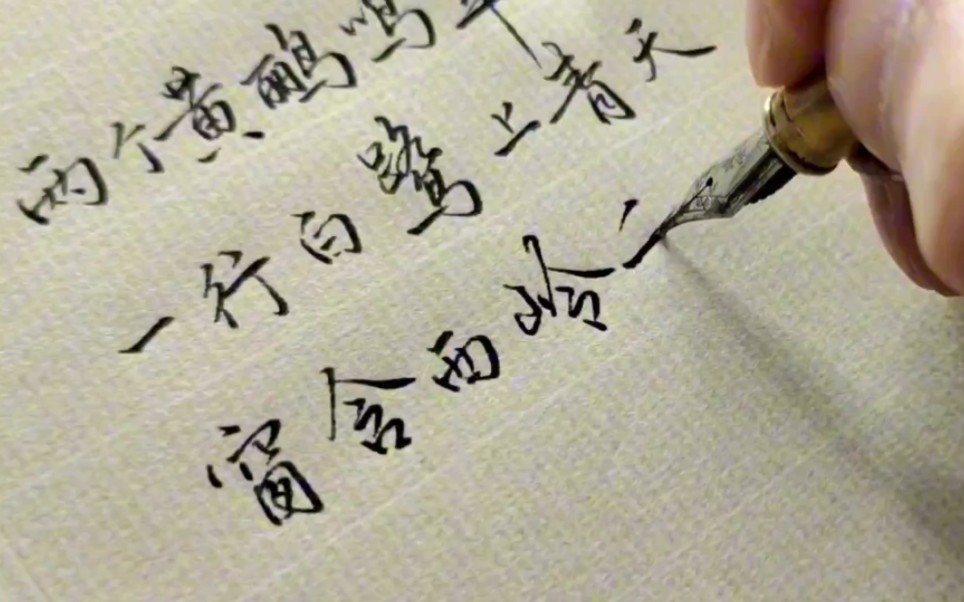 两个黄鹂鸣
一行白鹭上青天
窗含西岭